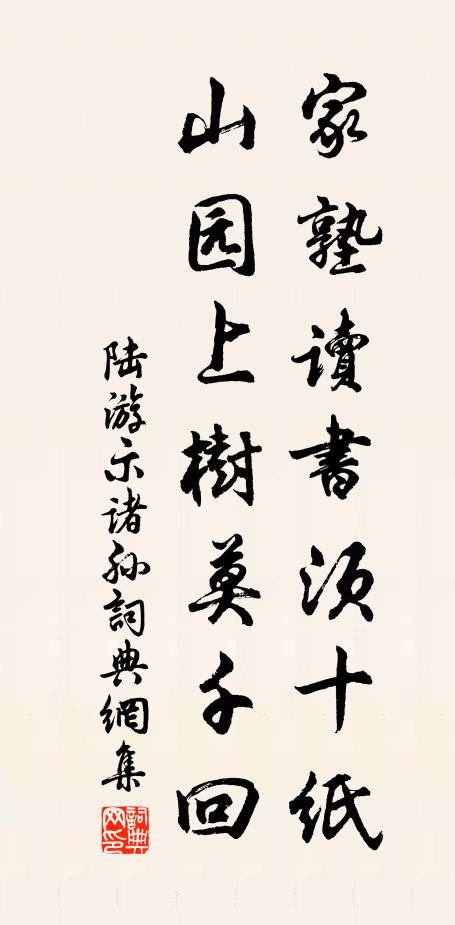 家塾讀書須十紙
山园上樹莫千回
陆游示诸孙詞典網集
詞典网印